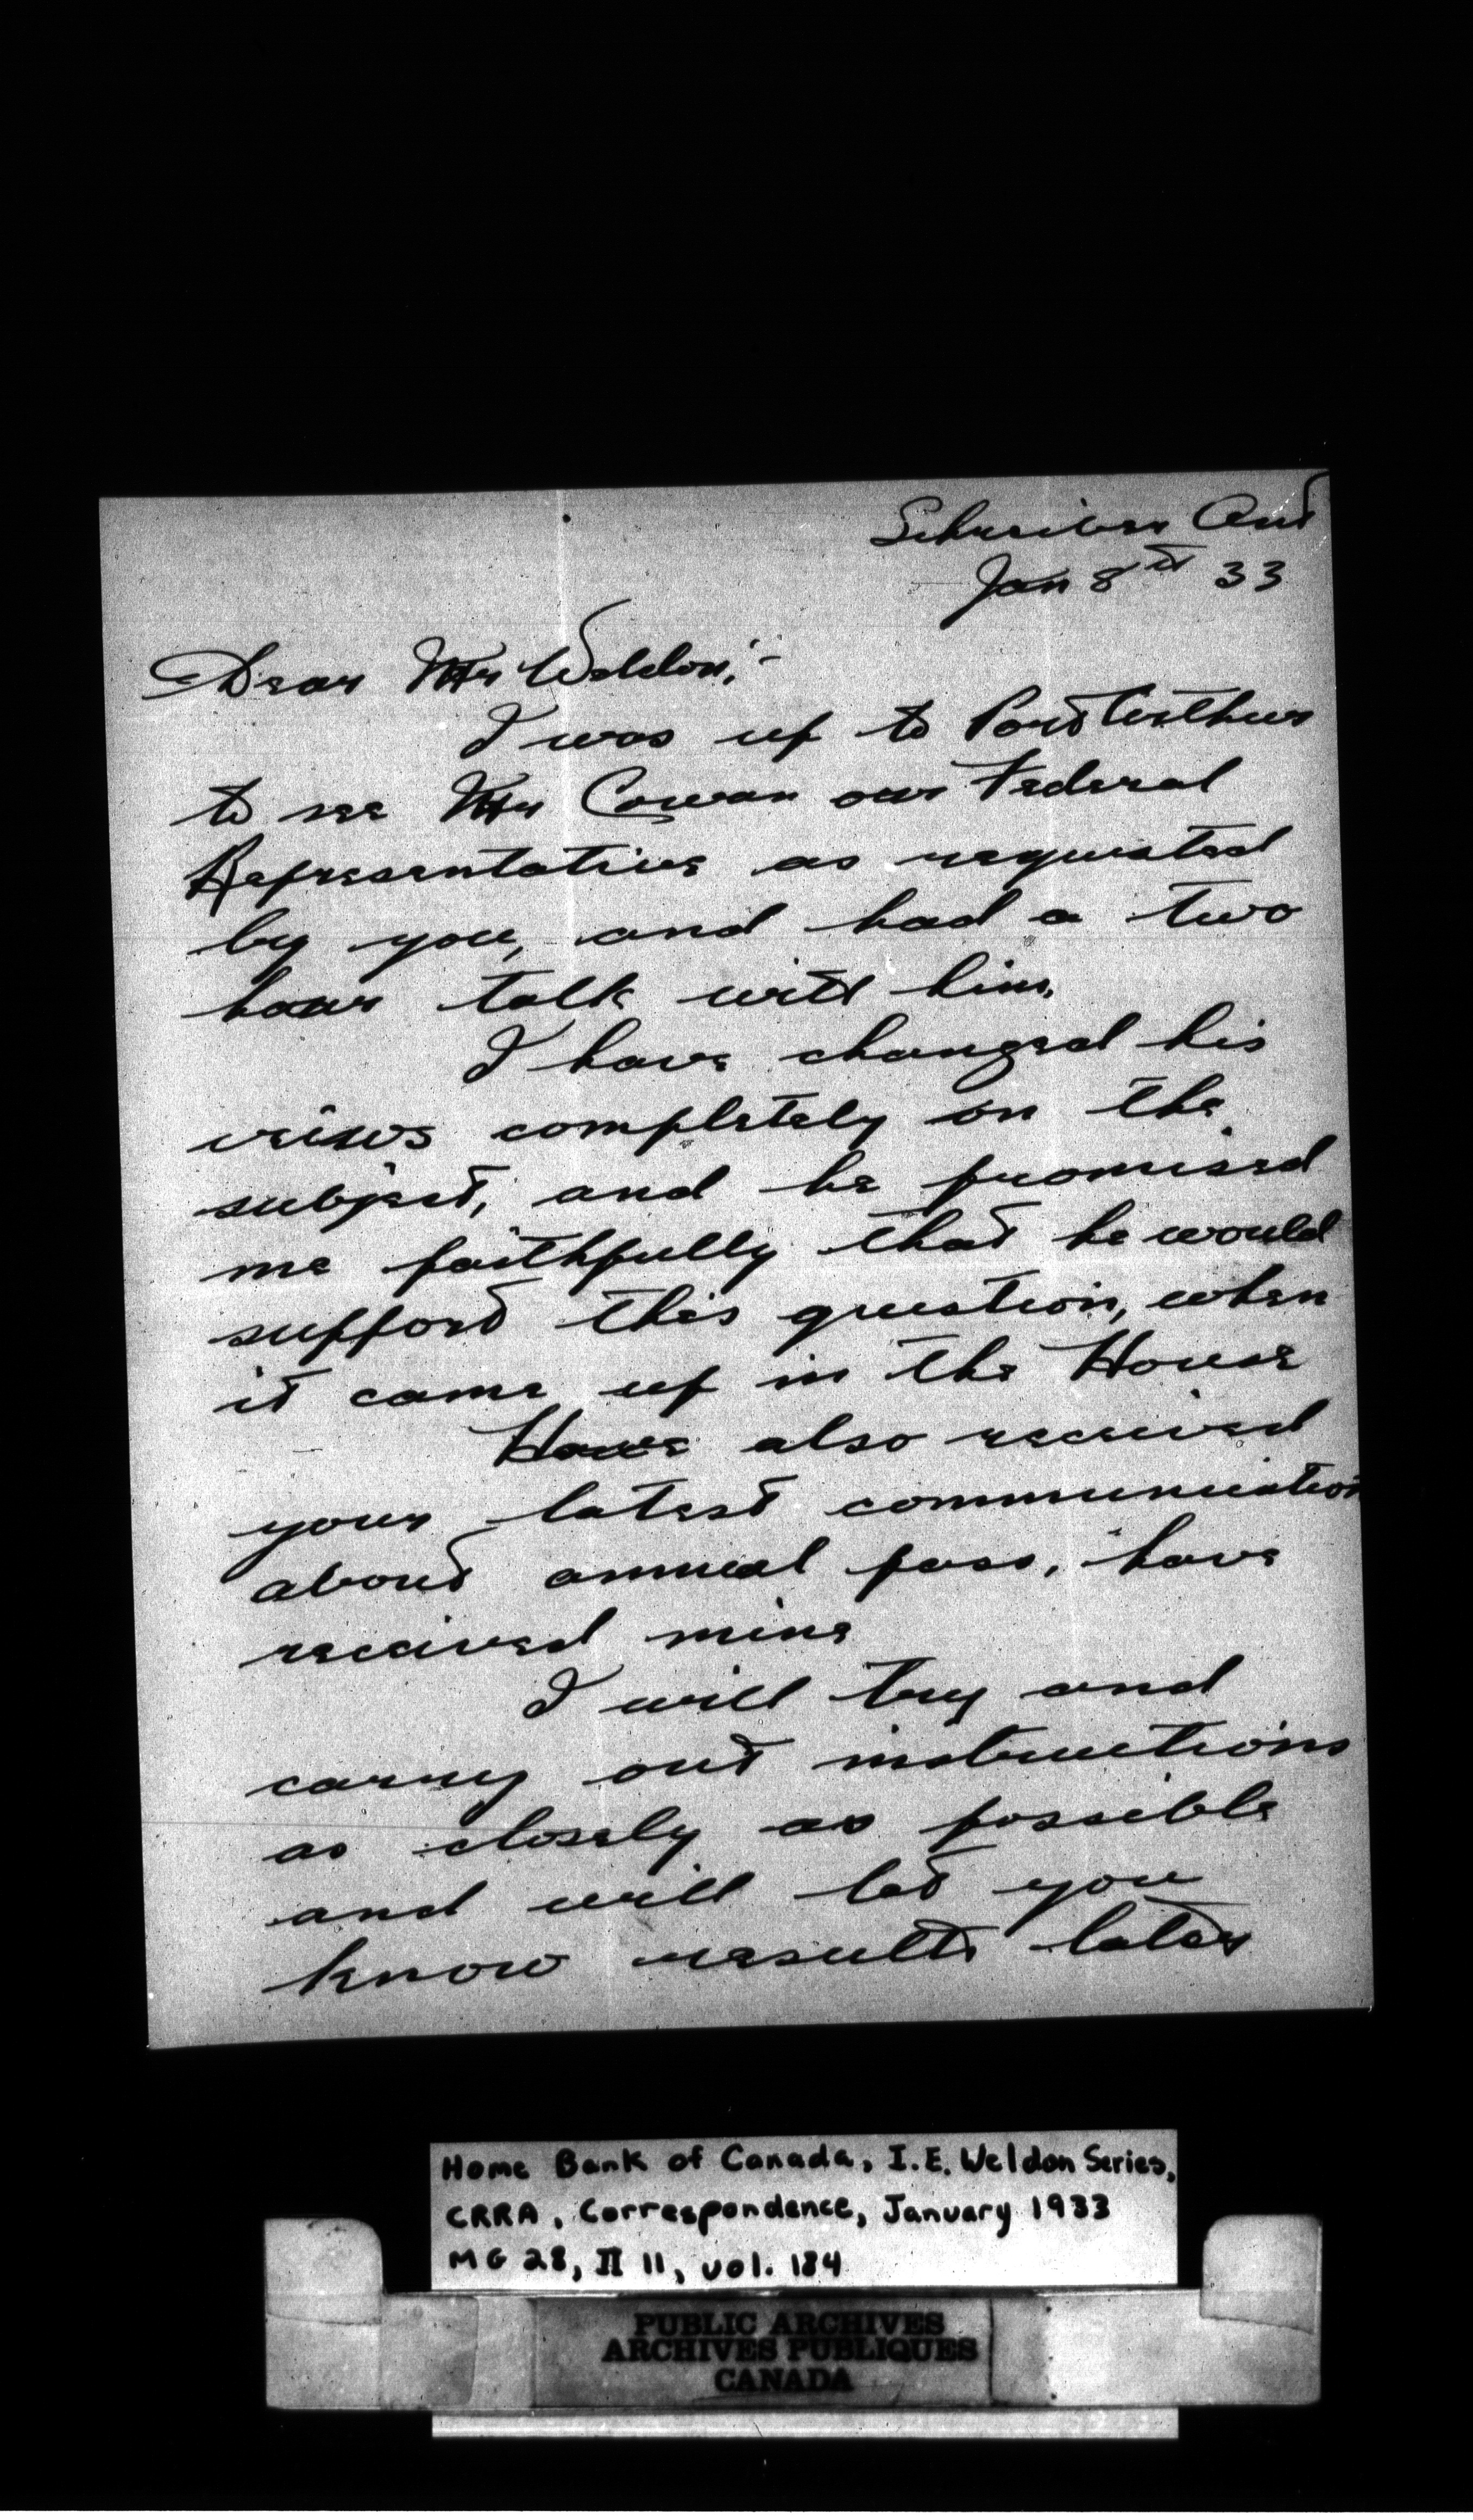 Schreiber Ont
Jan 8th 33
Dear Mr Weldon;-
I was up to Port Arthur
to see Mr Cowan our Federal
Representative as requested
by you, and had a two
hour talk with him.
I have changed his
veiws completely on the
subject, and he promised
me faithfully that he would
support this question, when
it came up in the House
Have also received
your latest communication
about annual pass, have
received mine
I will try and
carry out instructions
as closely as possible
and will let you
know results later
Home Bank of Canada, I.E. Weldon Series,
CRRA, Correspondence, January 1933
MG 28, II 11, vol. 184
PUBLIC ARCHIVES
ARCHIVES PUBLIQUES
CANADA